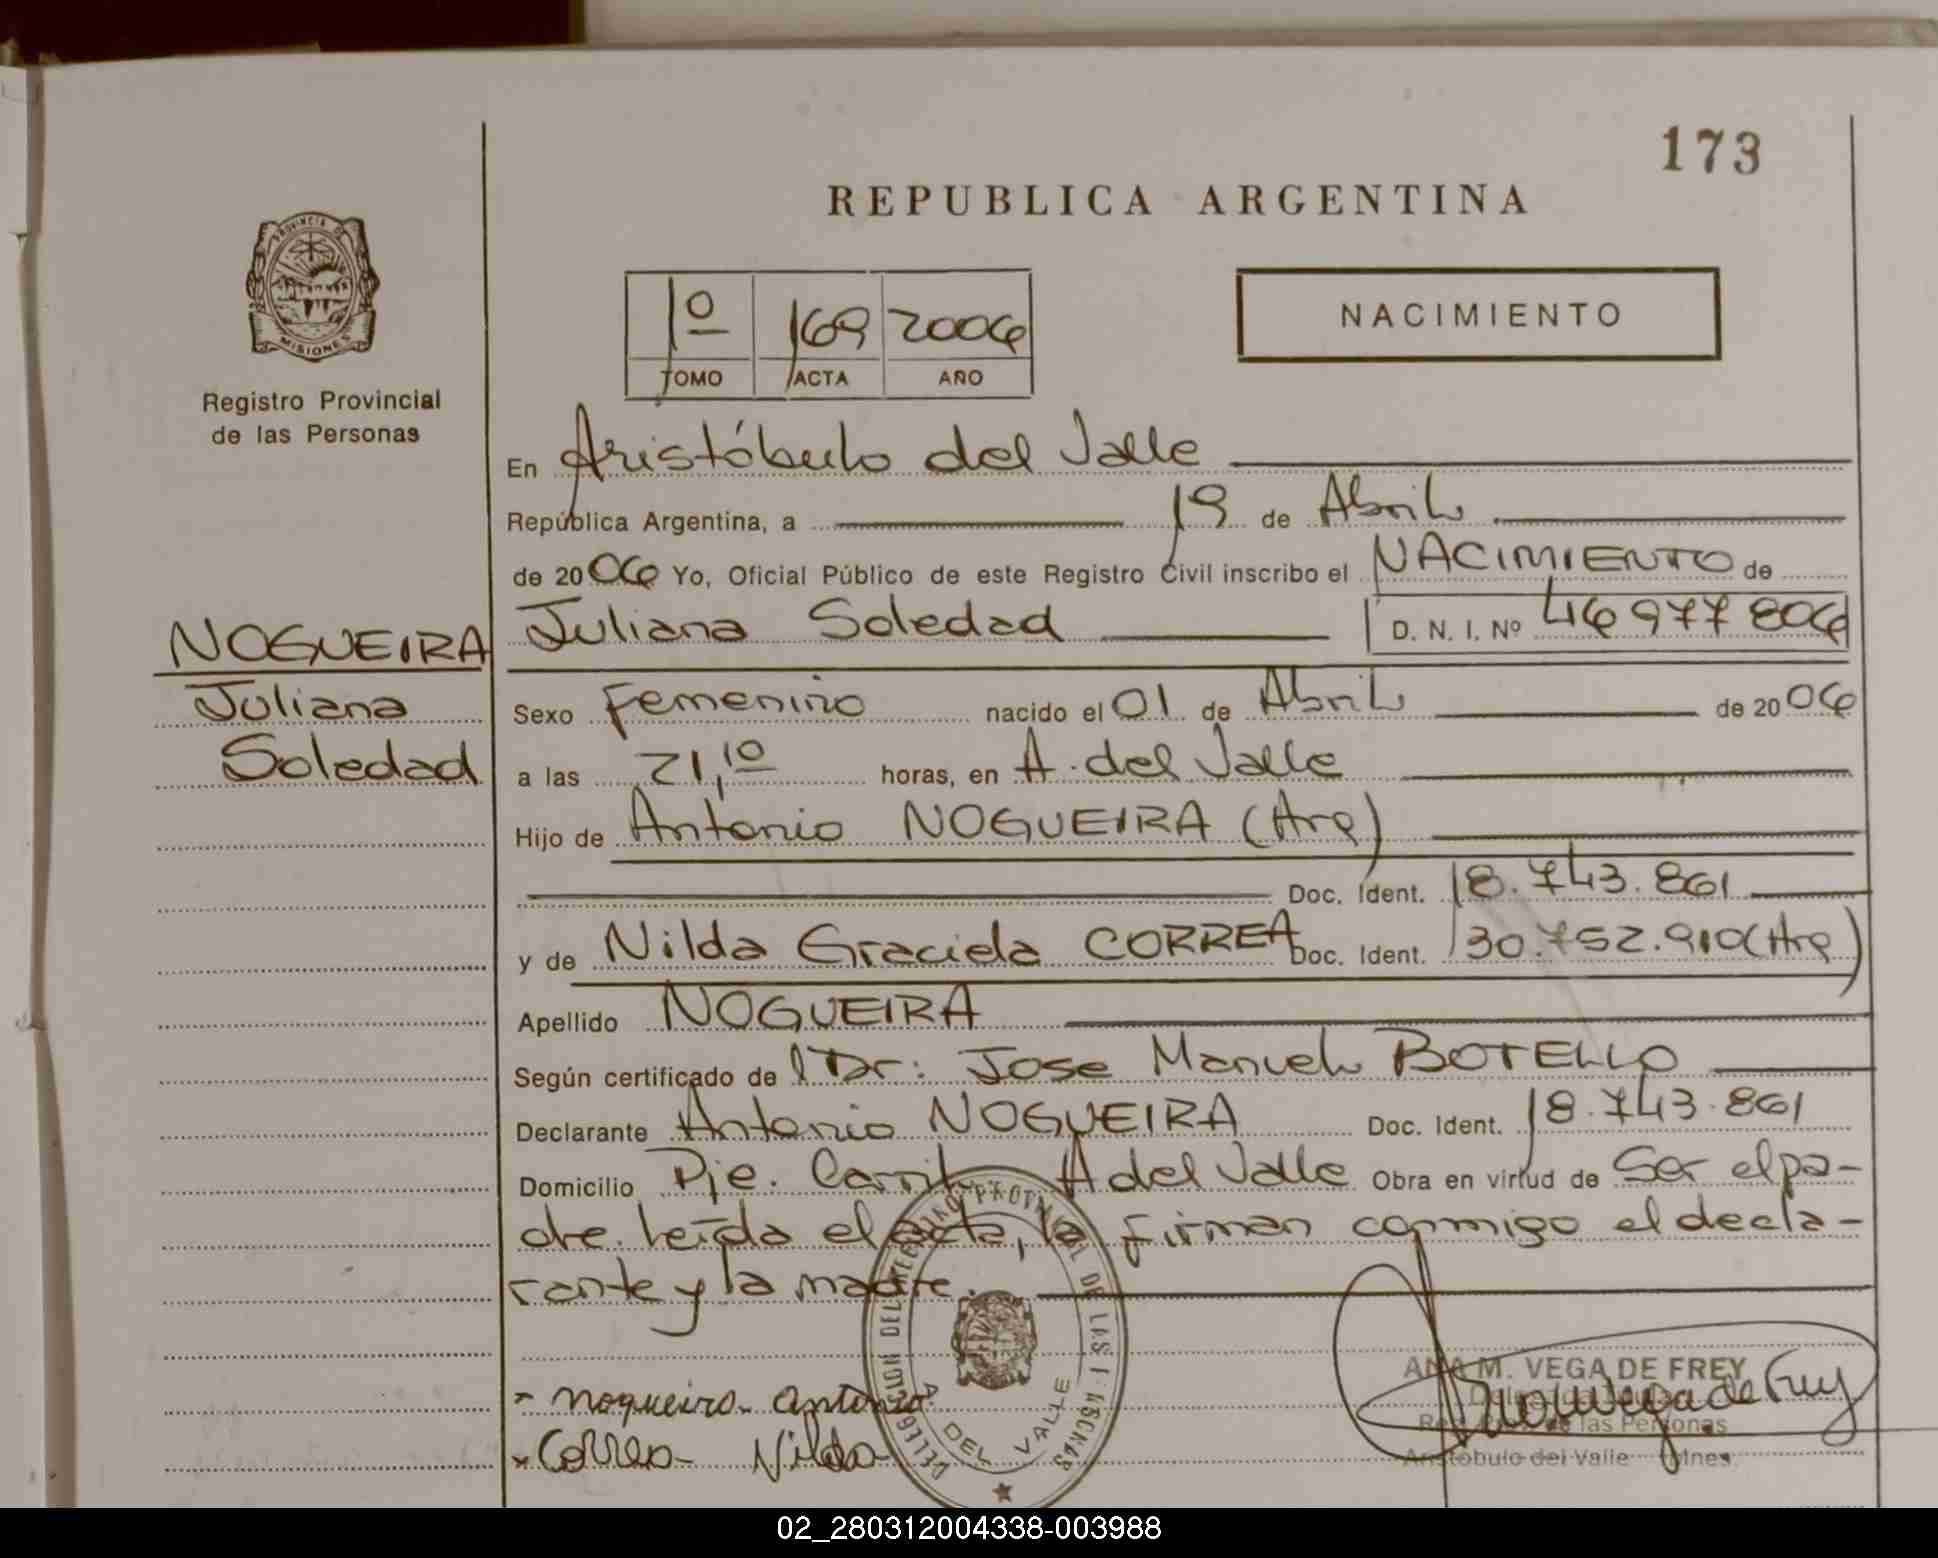 173
REPUBLICA ARGENTINA
PROVINCIA DE
MISIONES
Registro Provincial
de las Personas
1º 169 2006
TOMO ACTA AÑO
NACIMIENTO
En Aristóbulo del Valle
República Argentina, a 19 de Abril
de 2006 Yo, Oficial Público de este Registro Civil inscribo el NACIMIENTO de
NOGUEIRA
Juliana
Soledad
Juliana Soledad D. N. I. Nº 46 977 806
Sexo Femenino nacido el 01 de Abril de 2006
a las 21,10 horas, en A. del Valle
Hijo de Antonio NOGUEIRA (Arg)
Doc. Ident. 18.743.861
y de Nilda Graciela CORREA Doc. Ident. 30.752.910 (Arg)
Apellido NOGUEIRA
Según certificado de l Dr: Jose Manuel BOTELLO
Declarante Antonio NOGUEIRA Doc. Ident. 18.743.861
Domicilio Pje. A del Valle Obra en virtud de Ser el pa-
dre. Leída el acta, la firman conmigo el decla-
rante y la madre.
DELEGACION DEL REGISTRO PROVINCIAL DE LAS PERSONAS
A. DEL VALLE
Nogueira Antonio
Correa Nilda
ANA M. VEGA DE FREY
Reg. Prov. de las Personas
Aristobulo del Valle Mnes.
02_280312004338-003988